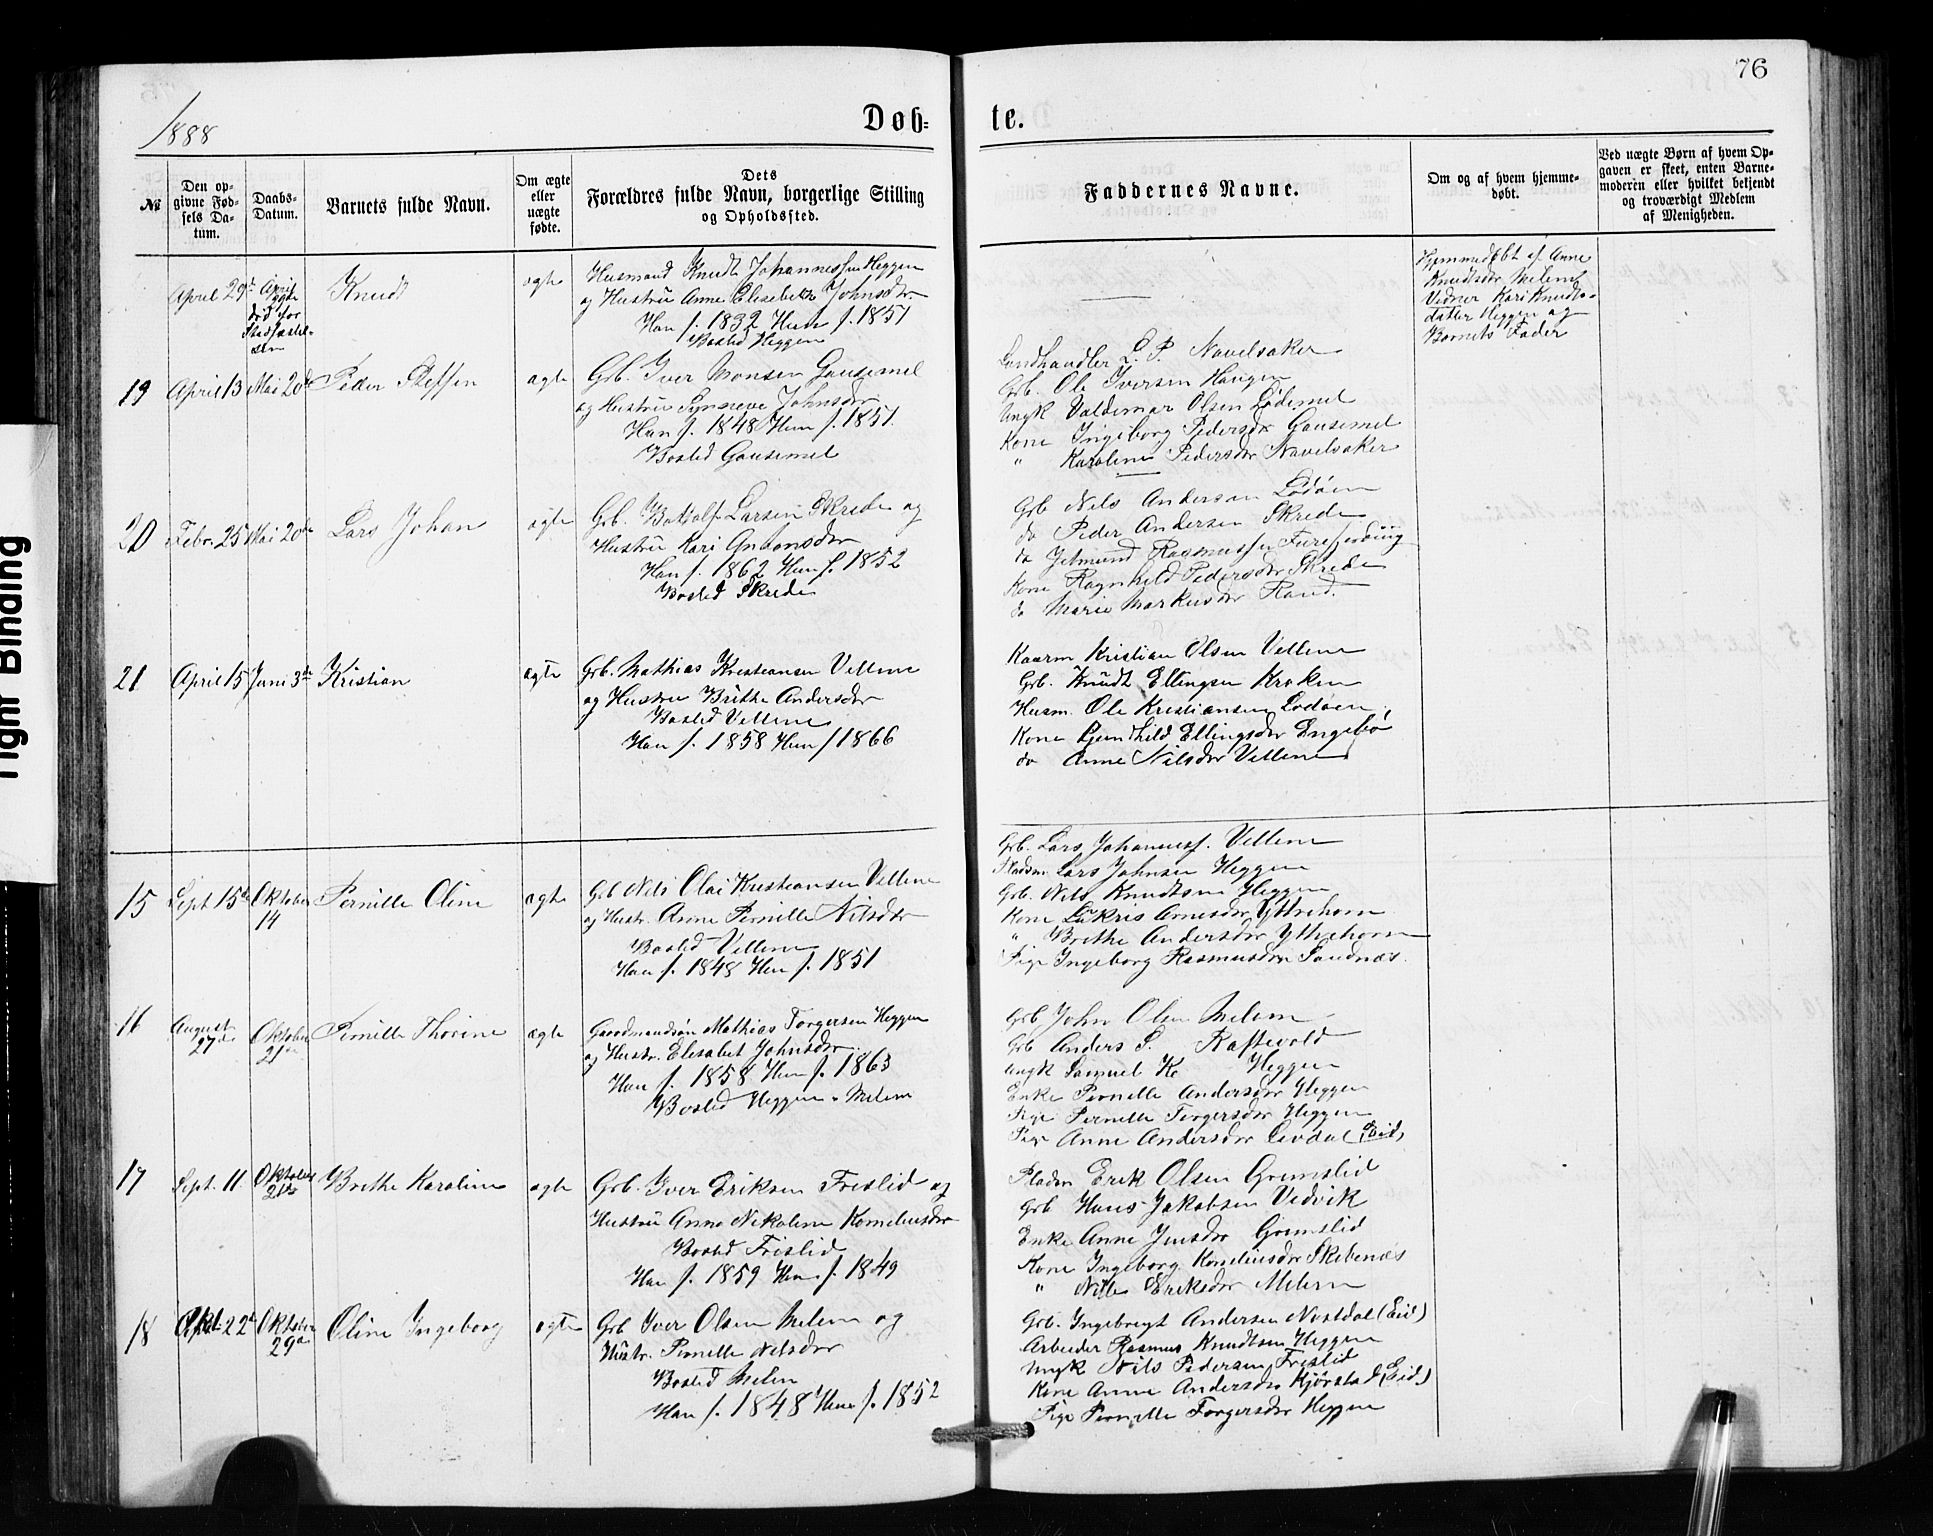 76
1888
Døb-
te.
№
Den op-
givne Fød-
sels Da-
tum.
Daabs-
Datum.
Barnets fulde Navn.
Om ægte
eller
uægte
fødte.
Dets
Forældres fulde Navn, borgerlige Stilling
og Opholdsted.
Faddernes Navne.
Om og af hvem hjemme-
døbt.
Ved uægte Børn af hvem Op-
gaven er skeet, enten Barne-
moderen eller hvilket bekjendt
og troværdigt Medlem
af Menigheden.
April 29de
April
død før
Stadfæstel-
sen
Knudt
ægte
Husmand Knudt Johannessen Heggen
og Hustru Anne Elisabeth Johnsdr.
Han f. 1832 Hun f. 1851
Bosted Heggen
Hjemmedøbt af Anne
Knudtsdr Melem
Vidner Kari Knudts-
datter Heggen og
Barnets Fader
19
April 13
Mai 20de
Peder Steffen
ægte
Grb. Iver Monsen Gausemel
og Hustru Synneve Johnsdr
Han f. 1848 Hun f. 1851.
Bosted Gausemel
Landhandler L. P. Navelsaker
Grb. Ole Iversen Haugen
Ungk Valdemar Olsen Lødemel
Kone Ingeborg Pedersdr Gausemel
" Karoline Pedersdr Navelsaker
20
Febr. 25
Mai 20de
Lars Johan
ægte
Grb. Bottolf Larsen Skrede og
Hustru Kari Antonsdr
Han f. 1862 Hun f. 1852
Bosted Skrede
Grb Nils Andersen Lødøen
do Peder Andersen Skrede
do Jetmund Rasmussen
Kone Ragnhild Pedersdr Skrede
do Marie Markusdr Rand.
21
April 15
Juni 3de
Kristian
ægte
Grb. Mathias Kristiansen Vellene
og Hustru Brithe Andersdr
Bosted Vellene
Han f. 1858 Hun f 1866
Kaarm Kristian Olsen Vellene
Grb. Knudt Ellingsen Kroken
Husm. Ole Kristiansen Lødøen,
Kone Ellingsdr Engebø
do Anne Nilsdr Vellene
15
Sept. 15de
Oktober
14
Pernille Oline
ægte
Grb Nils Olai Kristiansen Vellene
og Hustr. Anne Pernille Nilsdr
Bosted Vellene
Han f. 1848 Hun f. 1851
Grb. Lars Johannesf. Vellene
Pladsm Lars Johnsen Heggen
Grb. Nils Knudtsen Heggen
Kone Lukris Arnesdr Yttrehorn
" Brithe Andersdr Yttrehorn
Pige Ingeborg Rasmusdr Sandnæs.
16
August
27de
Oktober
21de
Pernille Thorine
ægte
Gaardmandsøn Mathias Torgersen Heggen
og Hustr. Elisabet Johnsdr.
Han f. 1858 Hun f. 1863
Bosted Heggen - Melem
Grb John Olsen Melem
Grb Anders S. Raftevold
Ungk Samuel K. Heggen
Enke Pernille Andersdr Heggen
Pige Pernille Torgersdr Heggen
Pige Anne Andersdr Levdal (Eid)
17
Sept. 11.
Oktober
21de
Brithe Karoline
ægte
Grb. Iver Eriksen Frislid og
Hustru Anna Nikoline Korneliusdr
Bosted Frislid
Han f. 1859 Hun f. 1849
Pladsm Erik Olsen Gremslid
Grb Hans Jakobsen Vedvik
Enke Anne Jensdr Gremslid
Kone Ingeborg Korneliusdr Skibenæs
" Nille Eriksdr Melem
18
22de
Oktober
29de
Oline Ingeborg
ægte
Grb Iver Olsen Melem og
Hustr. Pernille Nilsdr
Bosted Melem
Han f. 1848 Hun f. 1852
Grb. Ingebrigt Andersen Nostdal (Eid)
Arbeider Rasmus Knudtsen Heggen
Ungk Nils Pedersen Frislid
Kone Anne Andersdr Kjørstad (Eid.)
Pige Pernille Torgersdr Heggen
Tight Binding